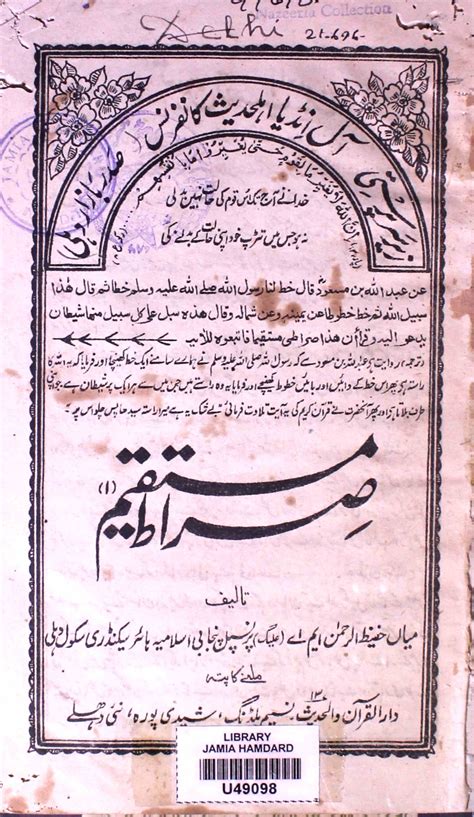 Delhi
21-696
Nazeeria Collection
زیر سرپرستی
آل انڈیا اہلحدیث کانفرنس
صدر بازار دہلی
خدا نے آج تک اس قوم کی حالت نہیں بدلی
نہ ہو جس میں تڑپ خود اپنی حالت کے بدلنے کی
عن عبد الله بن مسعود قال خط لنا رسول الله صلے الله علیه وسلم خطا ثم قال هٰذا
سبیل الله ثم خط خطوطا عن یمینه وعن شماله وقال هٰذه سبل علی کل سبیل منها شیطان
یدعو الیه وقرأ ان هٰذا صراطی مستقیما فاتبعوه للآیه
ترجمہ، روایت ہے عبداللہ بن مسعود سے کہ رسول اللہ صلی اللہ علیہ وسلم نے ہمارے سامنے ایک خط کھینچا اور فرمایا کہ یہ اللہ کا
راستہ ہے پھر اس خط کے دائیں اور بائیں خطوط کھینچے اور فرمایا یہ وہ راستے ہیں جن میں سے ہر ایک پر شیطان ہے جو اپنی
طرف بلاتا ہے اور پھر آنحضرت نے قرآن کریم کی یہ آیت تلاوت فرمائی بے شک یہ ہے میرا راستہ سیدھا پس چلو اس پر
صراط مستقیم (۱)
تالیف
میاں حفیظ الرحمن ایم اے (علیگ) پرنسپل پنجابی اسلامیہ ہائر سیکنڈری سکول دہلی
ملنے کا پتہ
دار القرآن والحدیث ۱۳ نسیم بلڈنگ، شیدی پورہ، نئی دھلے
LIBRARY
JAMIA HAMDARD
U49098